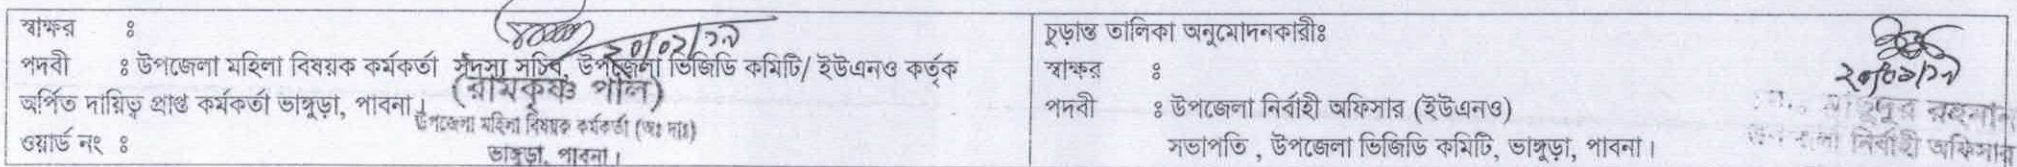 স্বাক্ষর ঃ
২০/০২/১৯
পদবী ঃ উপজেলা মহিলা বিষয়ক কর্মকর্তা সদস্য সচিব, উপজেলা ভিজিডি কমিটি/ ইউএনও কর্তৃক
অর্পিত দায়িত্ব প্রাপ্ত কর্মকর্তা ভাঙ্গুড়া, পাবনা।
(রামকৃষ্ণ পাল)
উপজেলা মহিলা বিষয়ক কর্মকর্তা (অঃ দাঃ)
ভাঙ্গুড়া, পাবনা।
ওয়ার্ড নং ঃ
চুড়ান্ত তালিকা অনুমোদনকারীঃ
স্বাক্ষর ঃ
পদবী ঃ উপজেলা নির্বাহী অফিসার (ইউএনও)
সভাপতি , উপজেলা ভিজিডি কমিটি, ভাঙ্গুড়া, পাবনা।
রহমান
নির্বাহী অফিসার